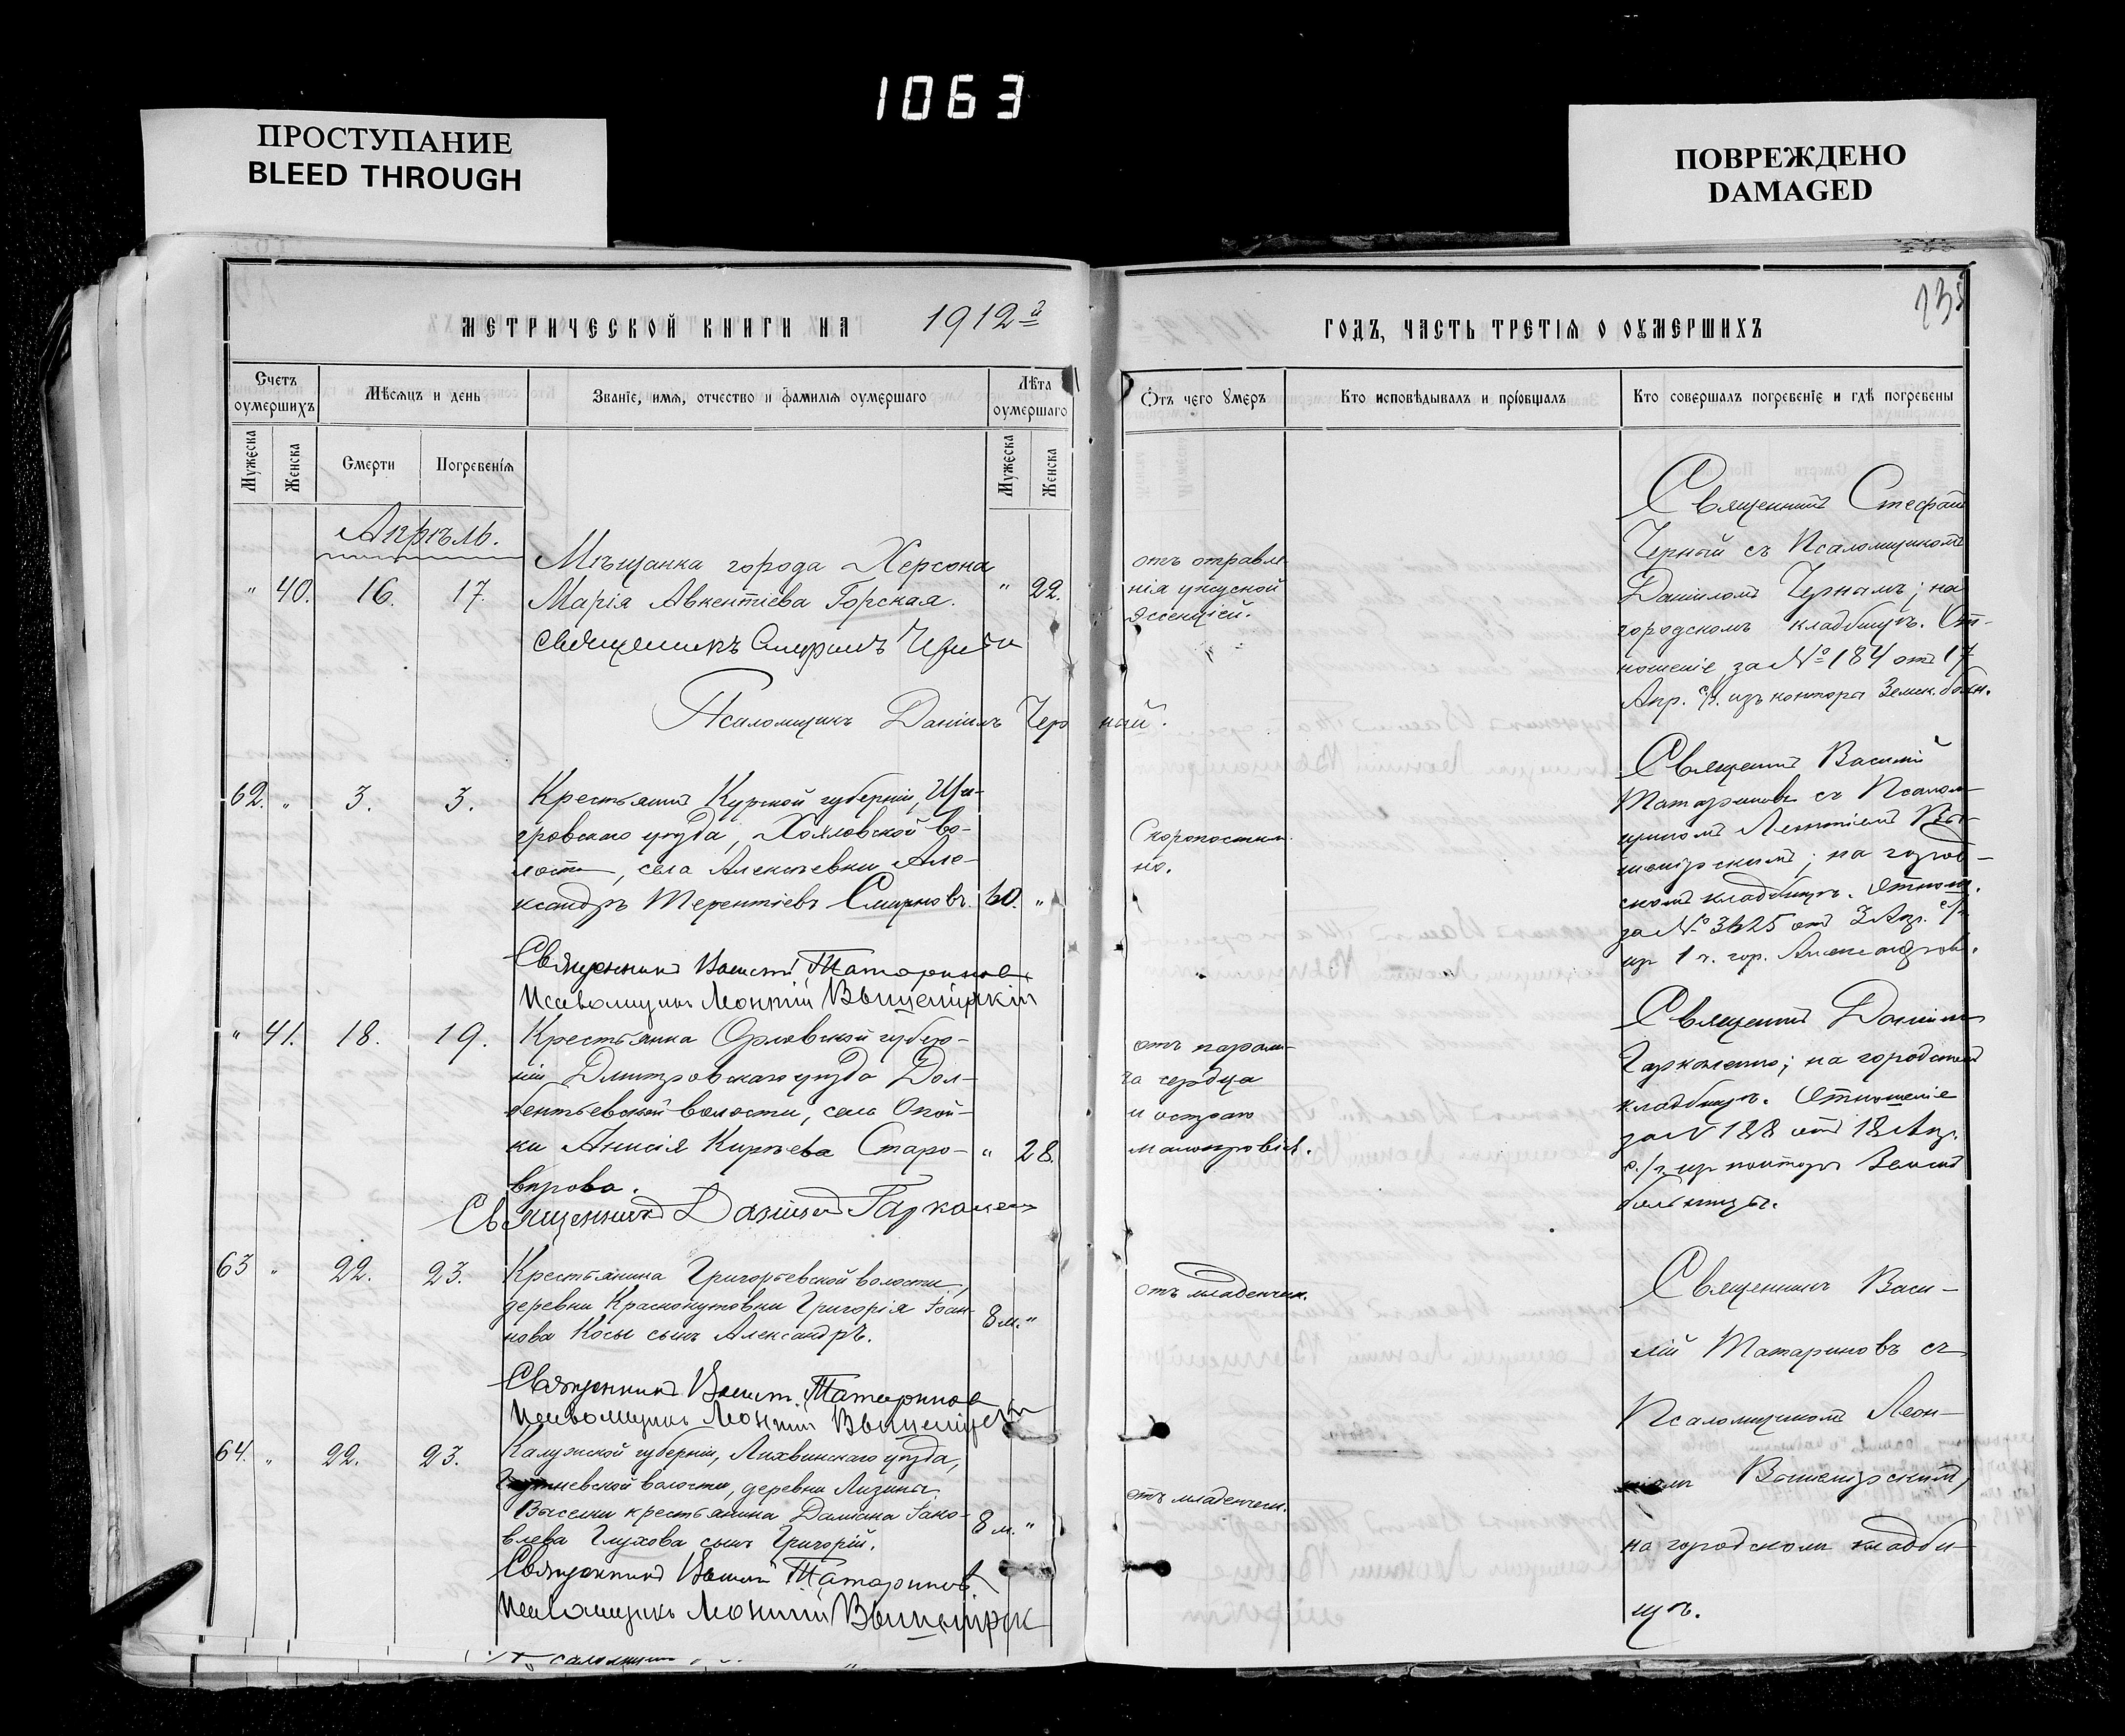 1063
ПРОСТУПАНИЕ
BLEED THROUGH
ПОВРЕЖДЕНО
DAMAGED
МЕТРИЧЕСКОЙ КНИГИ НА 1912й
ГОДЪ, ЧАСТЬ ТРЕТІѦ О ОУМЕРШИХЪ
235
Счетъ оумершихъ
Мѣсѧцъ и день
Званїе, имѧ, отчество и фамилїѧ оумершаго
Лѣта оумершаго
Ѿтъ чего оумеръ
Кто исповѣдывалъ и прїѡбщалъ
Кто совершалъ погребенїе и гдѣ погребены
Мужеска
Женска
Смерти
Погребенїѧ
Мужеска
Женска
Апрѣль.
" 40. 16. 17.
Мѣщанка города Херсона
Марія Авкентіева Горская.
" 22.
Священникъ Стефанъ Черный
Псаломщикъ Даніилъ Черный.
отъ отравле-
нія уксусной
эссенціей.
Священникъ Стефанъ
Черный съ Псаломщикомъ
Даніиломъ Чернымъ; на
городскомъ кладбищѣ. От-
ношеніе за № 184 отъ 17
Апр. с/г. изъ конторы Земск. больн.
62. " 3. 3.
Крестьянинъ Курской губерніи, Щи-
гровскаго уѣзда, Хохловской во-
лости, села Алексѣевки Але-
ксандръ Терентіевъ Смирновъ.
60. "
Священникъ Василій Татариновъ
Псаломщикъ Леонтій Вышемірскій
Скоропостиж-
но.
Священникъ Василій
Татариновъ съ Псалом-
щикомъ Леонтіемъ Вы-
шемірскимъ; на город-
скомъ кладбищѣ. Отнош.
за № 3625 отъ 3 Апр. с/г
изъ 1 ч. гор. Александров.
" 41. 18. 19.
Крестьянка Орловской губер-
ніи Дмитровскаго уѣзда Дол-
бентьевской волости, села Опой-
ки Анисія Кирѣева Старо-
вѣрова.
" 28.
Священникъ Даніилъ Гаркошенко
отъ парали-
ча сердца
и остраго
малокровія.
Священникъ Даніилъ
на городскомъ
кладбищѣ. Отношеніе
за № 188 отъ 18 Апр.
с/г изъ конторы Земской
больницы.
63 " 22. 23.
Крестьянина Григорьевской волости,
деревни Краснокутовки Григорія Іоан-
нова Косы сынъ Александръ.
8 м. "
Священникъ Василій Татариновъ
Псаломщикъ Леонтій Вышемірскій
отъ младенческ.
Священникъ Васи-
лій Татариновъ съ
Псаломщикомъ Леон-
тіемъ Вышемірскимъ,
на городскомъ кладби-
щѣ.
64. " 22. 23.
Калужской губерніи, Лихвинскаго уѣзда,
волости, деревни Лизины
Выселки крестьянина Даміана Іако-
влева Глухова сынъ Григорій.
8 м. "
Священникъ Василій Татариновъ
Псаломщикъ Леонтій Вышемірск
отъ младенческ.